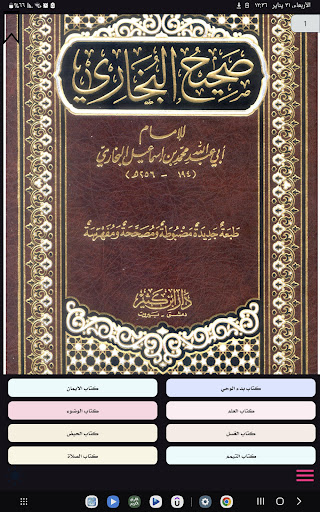 الأربعاء، ٣١ يناير ١٧:٣٦
1
صحيح البخاري
للإمام
أبي عبد الله محمد بن إسماعيل البخاري
(١٩٤ - ٢٥٦ هـ)
طبعة جديدة مضبوطة ومصححة ومفهرسة
دار ابن كثير
دمشق - بيروت
كتاب بدء الوحي
كتاب الايمان
كتاب العلم
كتاب الوضوء
كتاب الغسل
كتاب الحيض
كتاب التيمم
كتاب الصلاة